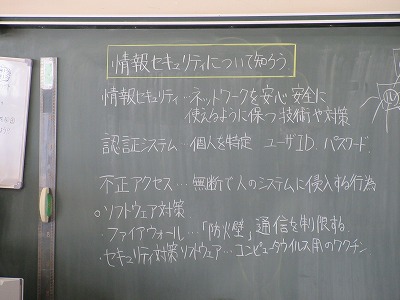 情報セキュリティについて知ろう
情報セキュリティ…ネットワークを安心安全に
使えるように保つ技術や対策
認証システム…個人を特定 ユーザID パスワード
不正アクセス…無断で人のシステムに侵入する行為
○ソフトウェア対策
・ファイアウォール…「防火壁」通信を制限する
・セキュリティ対策ソフトウェア…コンピュータウイルス用のワクチン